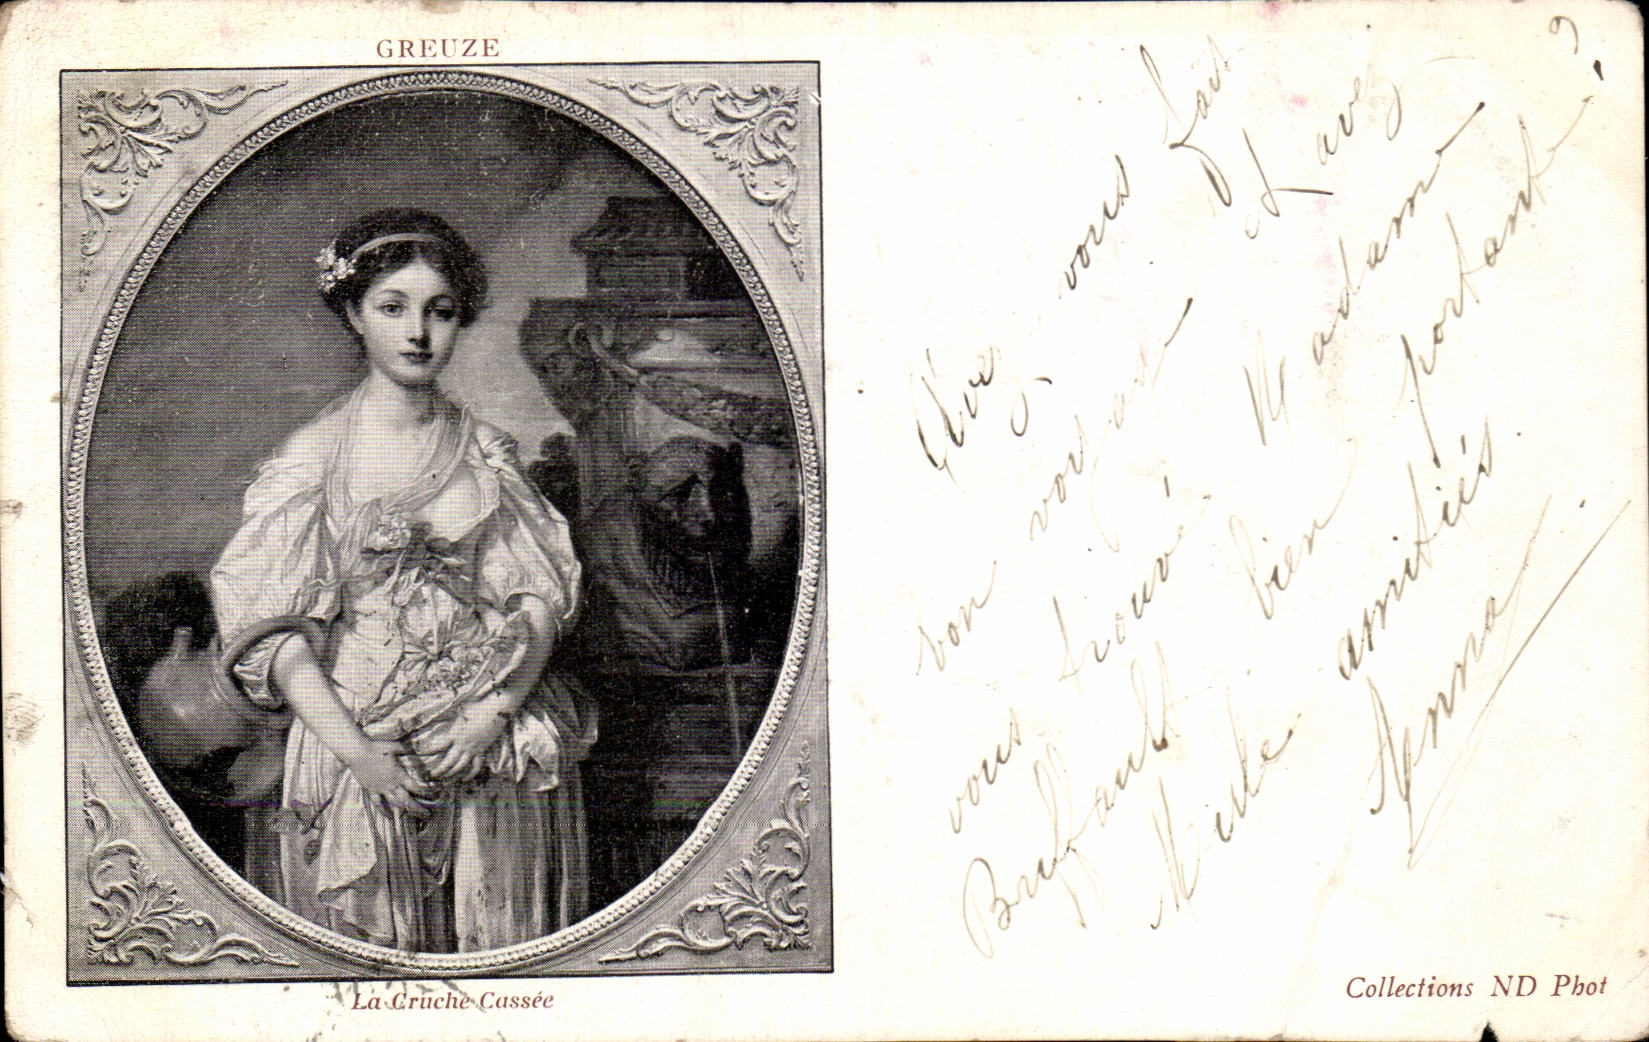 GREUZE
Avez vous fait
bon voyage & avez
vous trouvé Madame
Buffault bien portante ?
Mille amitiés.
Anna
La Cruche Cassée
Collections ND Phot